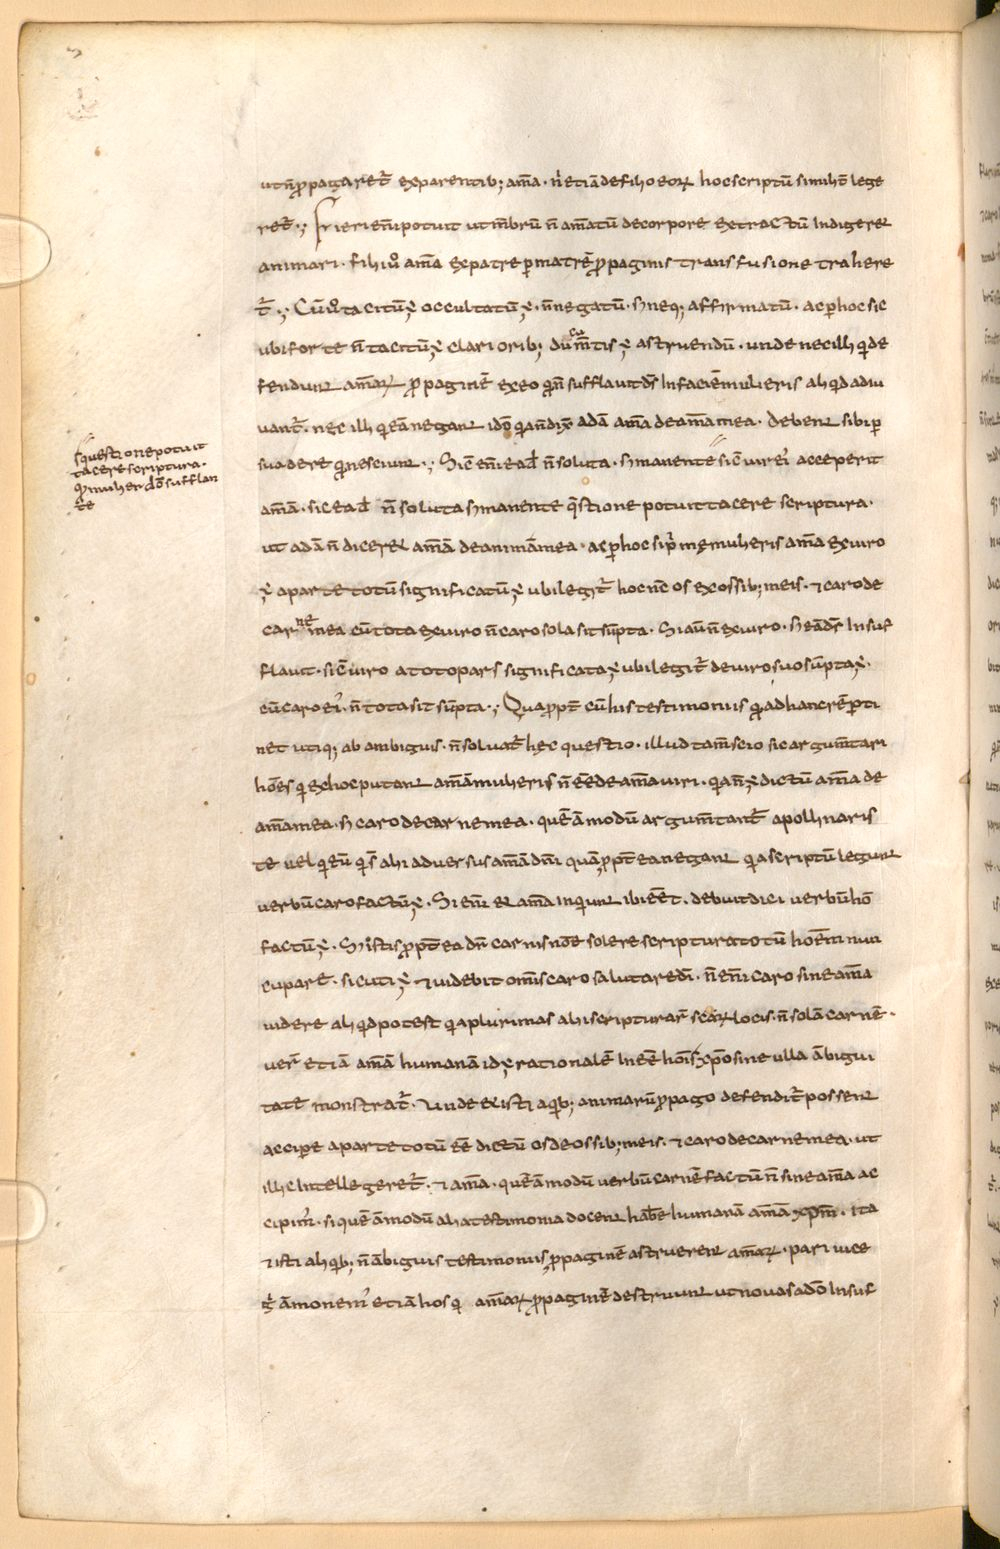 utn̄ ꝓpagaret̃ exparentib; am̄a · ni᷑etiā defilio eoꝝ hocscriptū similit̃ lege
ret̃ ·; Fierienīpotuit utm̄brū n̄ am̄atū decorpore extractū Indigeret
animari · filiiu᷑o am̄a expatre ꝑmatrē ꝓpaginis transfusione trahere
t̃ ·; Cūu᷑o tacitū÷ occultatū÷ · n̄negatū · s; neq; affirmatū · ac ꝑhoc sic
ubiforte n̄ tacitū÷ clariorib; docum̄tis ÷ astruendū · unde necilli qide
fendunt am̄aꝝ ꝓpaginē exeo qn̄ sufflauit d̄s Infaciē mulieris aliqd adiu
uant̃ · nec illi qeā negant ido̅ qa n̄dix̄ adā am̄a deam̄amea · debent sibi ꝑ
suadere qnesciunt ·; Sic̄ enī ead̄ n̄soluta · s; manente sic̄ uirei᷑ acceperit
am̄ā · sicead̄ n̄ soluta s; manente qstione potuit tacere scriptura ·
ut adā n̄ diceret am̄ā deanimāmea · ac ꝑhoc sip̄ mę mulieris am̄a exuiro
÷ aparte totū significatū÷ ubi legit̃ hoc nc̄ os exossib; meis · & carode
carne mea cū tota exuiro n̄ caro sola sit sūpta · Si aū n̄ exuiro · s; eād̄s Insuf
flauit · sic̄ uiro atoto pars significata÷ ubi legit̃ deuirosuo sūpta÷ ·
cū caro ei᷑ · n̄ tota sit sūpta ·; Quaꝓpt̃ cū his testimoniis q̄ adhancrē ꝑti
net utiq; ab ambiguis · n̄ soluat̃ hęc questio · illud tam̄ scio sic argum̄tari
ho̅es qi exhoc putant am̄ām ulieris n̄ ēē deam̄auiri · qa n̄÷ dictū am̄a de
am̄amea · s; carodecarnemea · quēāmodū argum̄tant̃ apollinaris
te uel qi eū qi s̄ alii aduersus am̄ā dn̄i quā ꝓpt̃ ea negant qa scriptū legunt
uerbū caro factū÷ · Si enī et am̄a inqiunt ibi eēt · debuit dici uerbū ho̅
factū÷ · S; istis ꝓpt̃ ea dr̄ carnis no̅e solere scriptura totū hoēm nun
cupare · sicuti ÷ & uidebit om̄is caro salutare dī · n̄ enī caro sine am̄a
uidere aliqd potest qa plurimas alii scripturar̄ scaꝝ locis · n̄ solā carnē ·
uer̄ etiā am̄ā humanā id÷ rationalē In eē hois xpo̅ sine ulla ābigui
tate monstrat̃ · Unde et isti aqib; animarū ꝓpago defendit̃ possent
accipe aparte totū eē dictū os de ossib; meis · & caro decarne mea · ut
illic Intellegeret̃ · & am̄a · quēāmodū uerbū carnē factū n̄ sine am̄a ac
cipim᷑ · si quēāmodū alia testimonia docent habe humanā am̄ā xpm̄ · ita
& isti aliqib; n̄ābiguis testimoniis ꝓpaginē astruerent am̄aꝝ · pari uice
g° āmonem᷑ etiā hos qi am̄aꝝ ꝓpaginē destruunt ut nouas ado̅ Insuf
questione potuit
tacere scriptura ·
q̄ mulieri do̅ sufflan
te